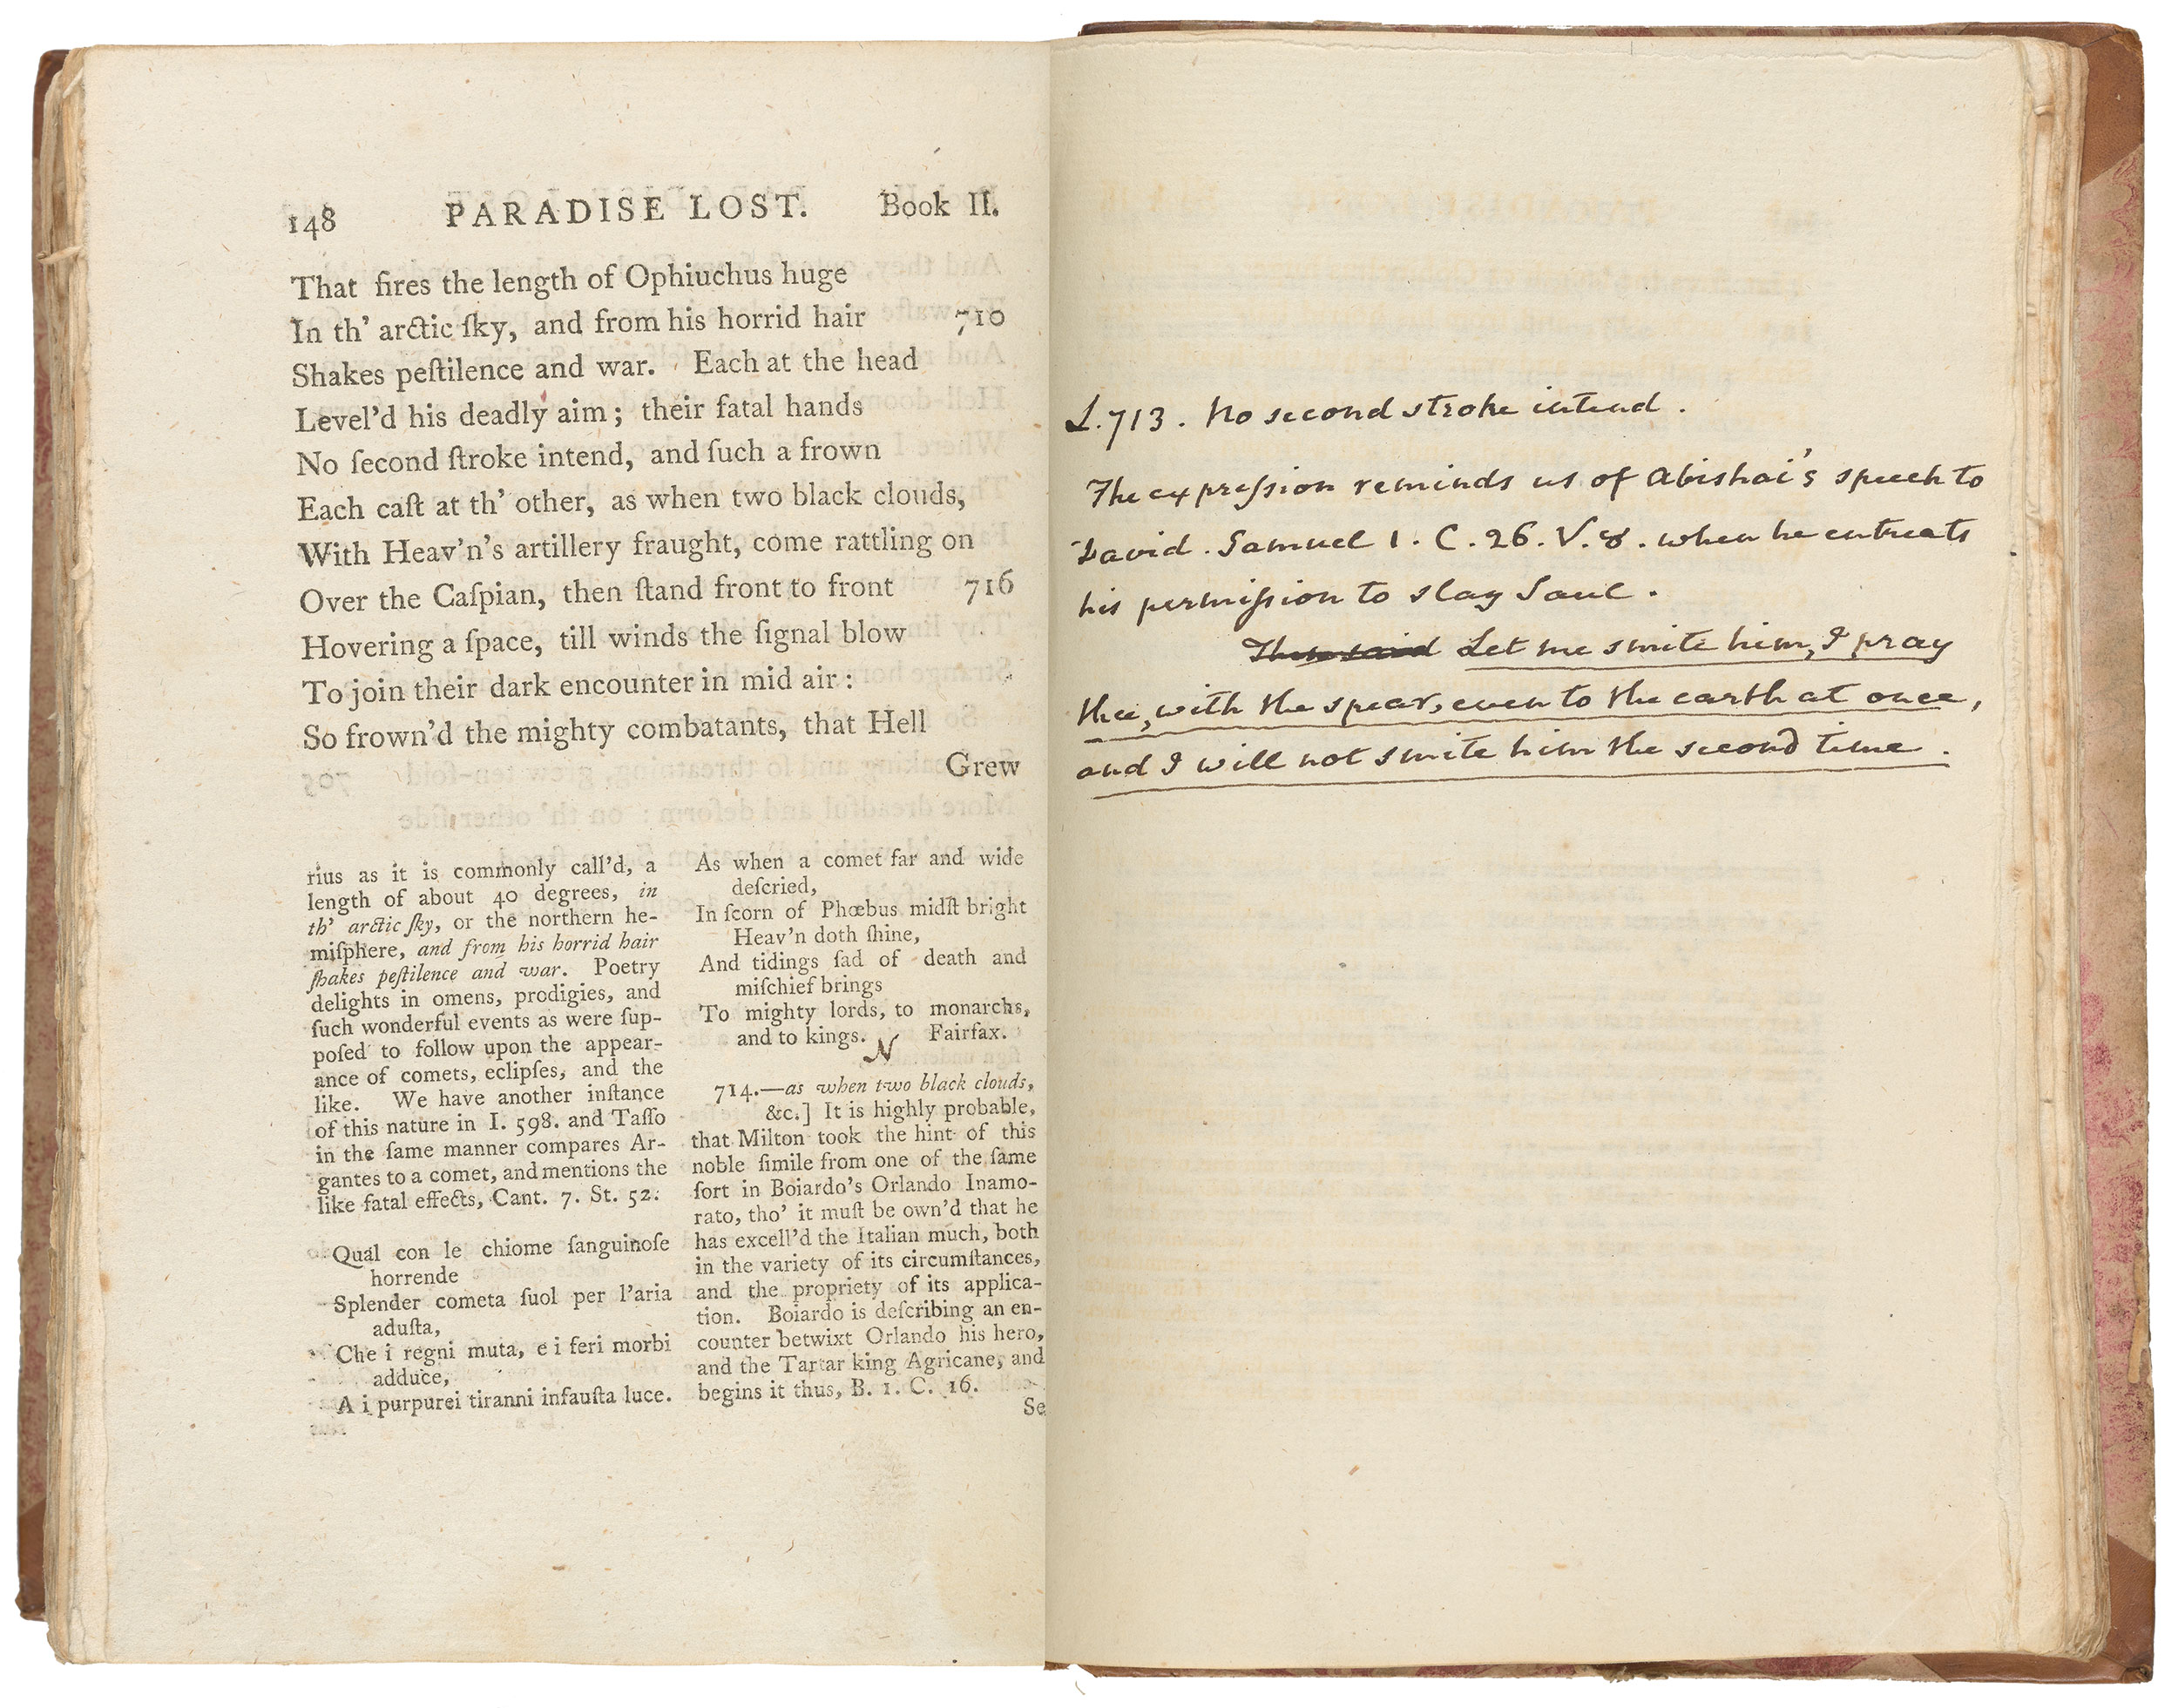 148 PARADISE LOST. Book II.
That fires the length of Ophiuchus huge
In th' arctic ſky, and from his horrid hair 710
Shakes peſtilence and war. Each at the head
Level'd his deadly aim; their fatal hands
No ſecond ſtroke intend, and ſuch a frown
Each caſt at th' other, as when two black clouds,
With Heav'n's artillery fraught, come rattling on
Over the Caſpian, then ſtand front to front 716
Hovering a ſpace, till winds the ſignal blow
To join their dark encounter in mid air:
So frown'd the mighty combatants, that Hell
Grew
rius as it is commonly call'd, a
length of about 40 degrees, in
th' arctic ſky, or the northern he-
miſphere, and from his horrid hair
ſhakes peſtilence and war. Poetry
delights in omens, prodigies, and
ſuch wonderful events as were ſup-
poſed to follow upon the appear-
ance of comets, eclipſes, and the
like. We have another inſtance
of this nature in I. 598. and Taſſo
in the ſame manner compares Ar-
gantes to a comet, and mentions the
like fatal effects, Cant. 7. St. 52.
Qual con le chiome ſanguinoſe
horrende
Splender cometa ſuol per l'aria
aduſta,
Che i regni muta, e i feri morbi
adduce,
A i purpurei tiranni infauſta luce.
As when a comet far and wide
deſcried,
In ſcorn of Phœbus midſt bright
Heav'n doth ſhine,
And tidings ſad of death and
miſchief brings
To mighty lords, to monarchs,
and to kings. N Fairfax.
714.—as when two black clouds,
&c.] It is highly probable,
that Milton took the hint of this
noble ſimile from one of the ſame
ſort in Boiardo's Orlando Inamo-
rato, tho' it muſt be own'd that he
has excell'd the Italian much, both
in the variety of its circumſtances,
and the propriety of its applica-
tion. Boiardo is deſcribing an en-
counter betwixt Orlando his hero,
and the Tartar king Agricane, and
begins it thus, B. 1. C. 16.
Se
L.713. No second stroke intend.
The expreſsion reminds us of Abishai's speech to
David. Samuel 1. C. 26. V. 8. when he entreats
his permiſsion to slay Saul.
Then said Let me smite him, I pray
thee, with the spear, even to the earth at once,
and I will not smite him the second time.